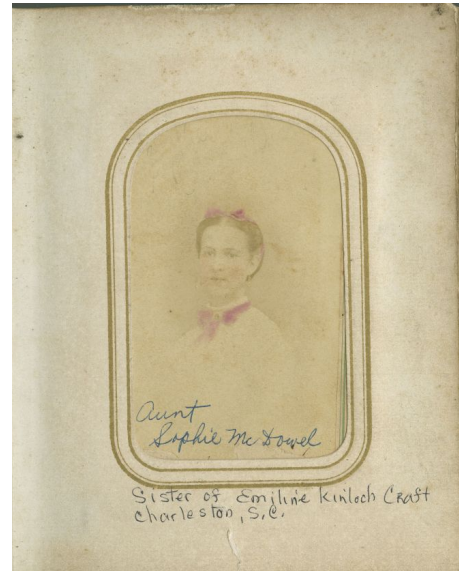 Aunt
Sophie McDowel
Sister of Emiline Kinloch Craft
Charleston, S.C.